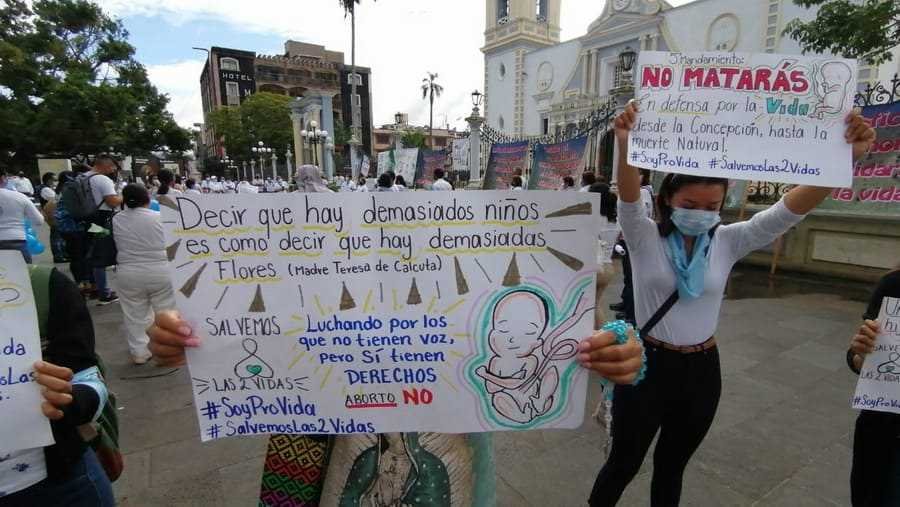 HOTEL
5 Mandamiento:
NO MATARÁS
En defensa por la Vida
desde la Concepción, hasta la
muerte Natural.
#SoyProVida #SalvemosLas2Vidas
Decir que hay demasiados niños
es como decir que hay demasiadas
Flores (Madre Teresa de Calcuta)
SALVEMOS
LAS 2 VIDAS
#SoyProVida
#SalvemosLas2Vidas
Luchando por los
que no tienen voz,
pero Sí tienen
DERECHOS
ABORTO NO
la vida
SALVEMOS
LAS 2 VIDAS